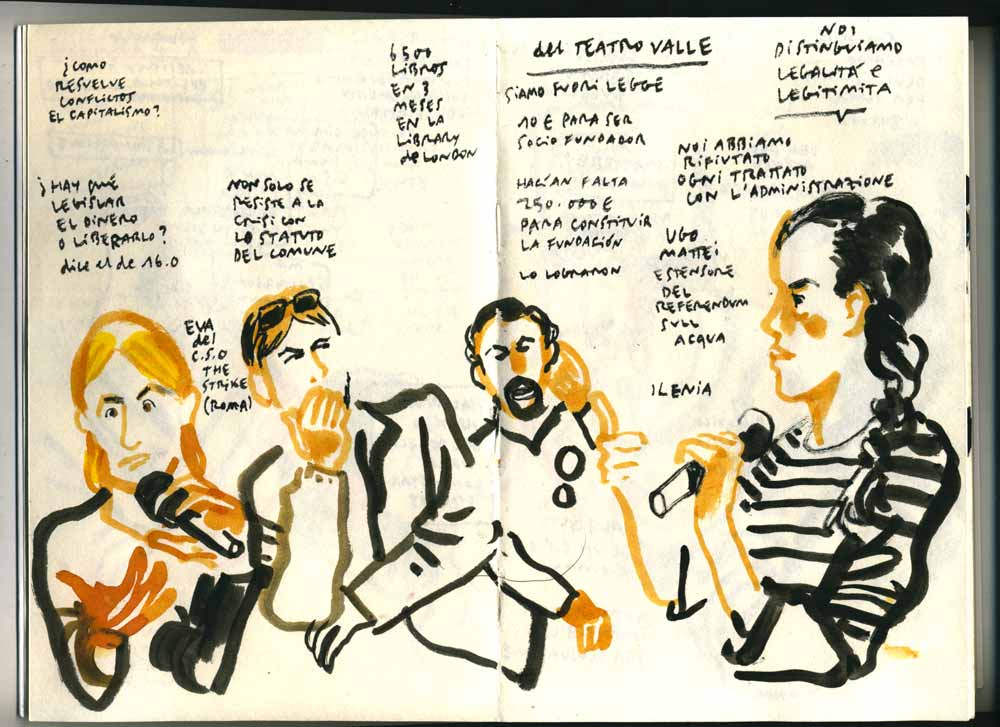 ¿COMO
RESUELVE
CONFLICTOS
EL CAPITALISMO?
¿HAY QUÉ
LEGISLAR
EL DINERO
O LIBERARLO?
dice el de 16.0
NON SOLO SE
RESISTE A LA
CRISI CON
LO STATUTO
DEL COMUNE
6500
LIBROS
EN 3
MESES
EN LA
LIBRARY
de LONDON
EVA
del
C.S.O
THE
STRIKE
(ROMA)
del TEATRO VALLE
SIAMO FUORI LEGGE
10 € PARA SER
SOCIO FUNDADOR
HACÍAN FALTA
250.000 €
PARA CONSTITUIR
LA FUNDACIÓN
LO LOGRARON
NOI
DISTINGUIAMO
LEGALITÁ e
LEGITIMITA
NOI ABBIAMO
RIFIUTATO
OGNI TRATTATO
CON L'ADMINISTRAZIONE
UGO
MATTEI
ESTENSORE
DEL
REFERENDUM
SULL
ACQUA
ILENIA